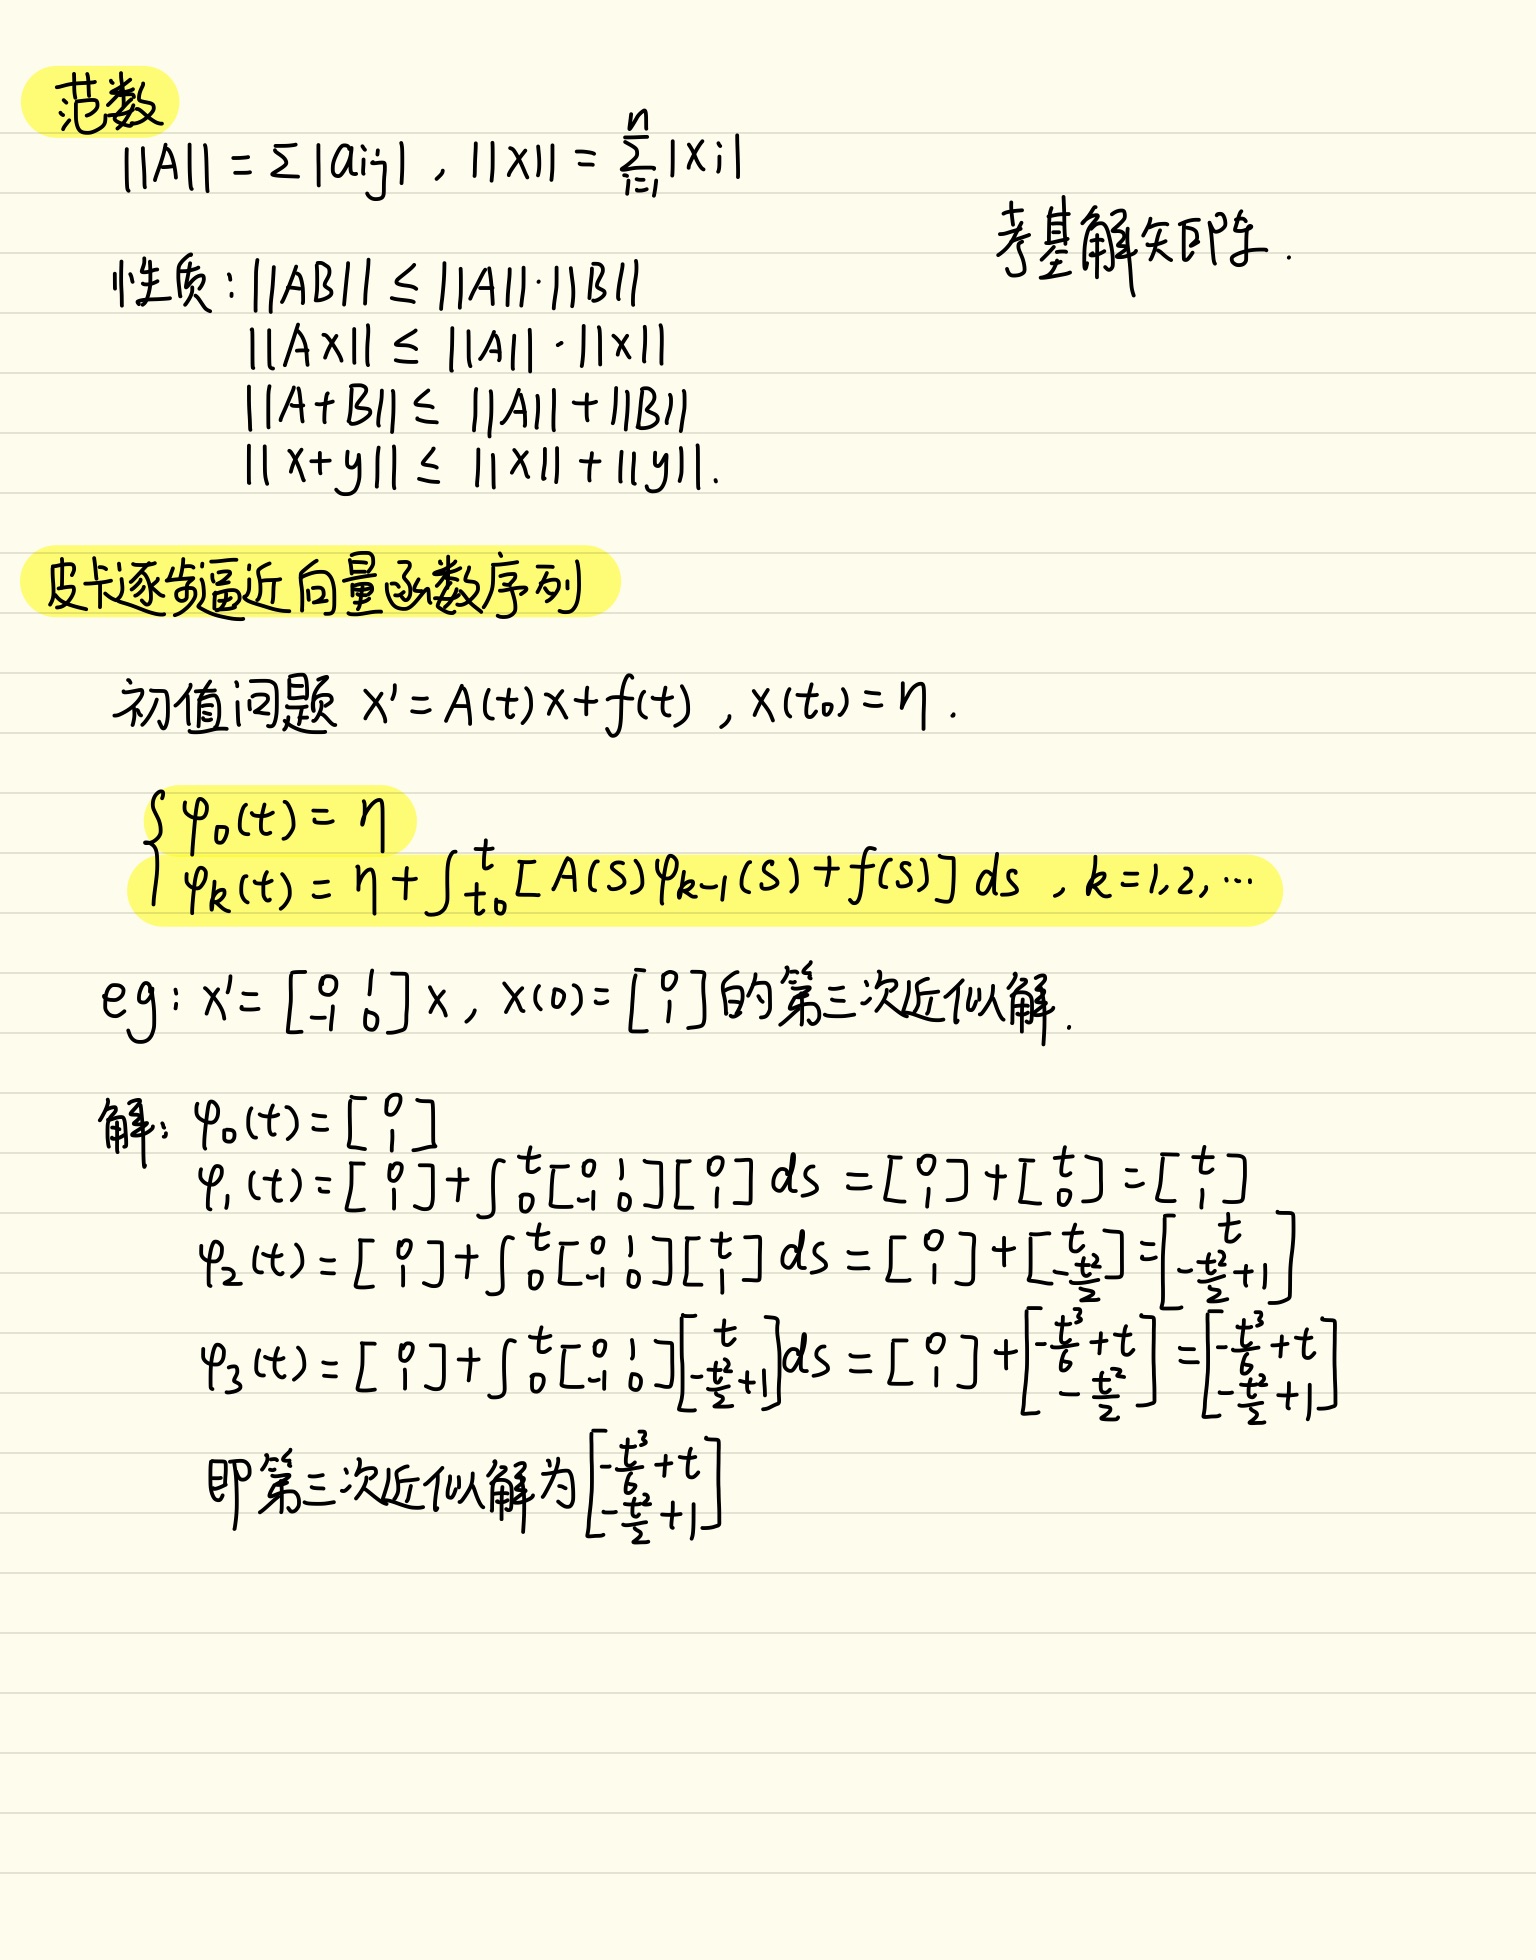 范数
||A|| = Σ|aij| , ||x|| = Σ_{i=1}^{n} |xi|
考基解矩阵.
性质: ||AB|| ≤ ||A||·||B||
||Ax|| ≤ ||A||·||x||
||A+B|| ≤ ||A|| + ||B||
||x+y|| ≤ ||x|| + ||y||.
皮卡逐步逼近向量函数序列
初值问题 x' = A(t)x + f(t) , x(t₀) = η .
{ φ₀(t) = η
φₖ(t) = η + ∫_{t₀}^{t} [A(s)φₖ₋₁(s) + f(s)] ds , k=1,2,…
eg: x' = [0 1; -1 0] x , x(0) = [0; 1] 的第三次近似解.
解: φ₀(t) = [0; 1]
φ₁(t) = [0; 1] + ∫_0^t [0 1; -1 0][0; 1] ds = [0; 1] + [t; 0] = [t; 1]
φ₂(t) = [0; 1] + ∫_0^t [0 1; -1 0][t; 1] ds = [0; 1] + [t; -t²/2] = [t; -t²/2+1]
φ₃(t) = [0; 1] + ∫_0^t [0 1; -1 0][t; -t²/2+1] ds = [0; 1] + [-t³/6+t; -t²/2] = [-t³/6+t; -t²/2+1]
即第三次近似解为 [-t³/6+t; -t²/2+1]